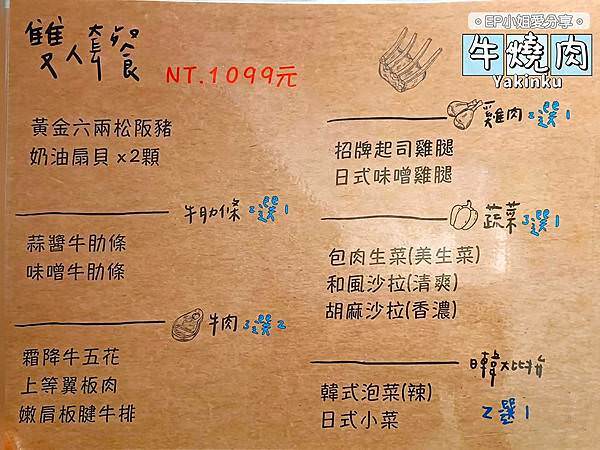 。EP小姐愛分享。
牛燒肉
Yakinku
雙人套餐
NT.1099元
黃金六兩松阪豬
奶油扇貝 x2顆
牛肋條 2選1
蒜醬牛肋條
味噌牛肋條
牛肉 3選2
霜降牛五花
上等翼板肉
嫩肩板腱牛排
雞肉 2選1
招牌起司雞腿
日式味噌雞腿
蔬菜 3選1
包肉生菜(美生菜)
和風沙拉(清爽)
胡麻沙拉(香濃)
日韓大比拚
韓式泡菜(辣)
日式小菜
2選1